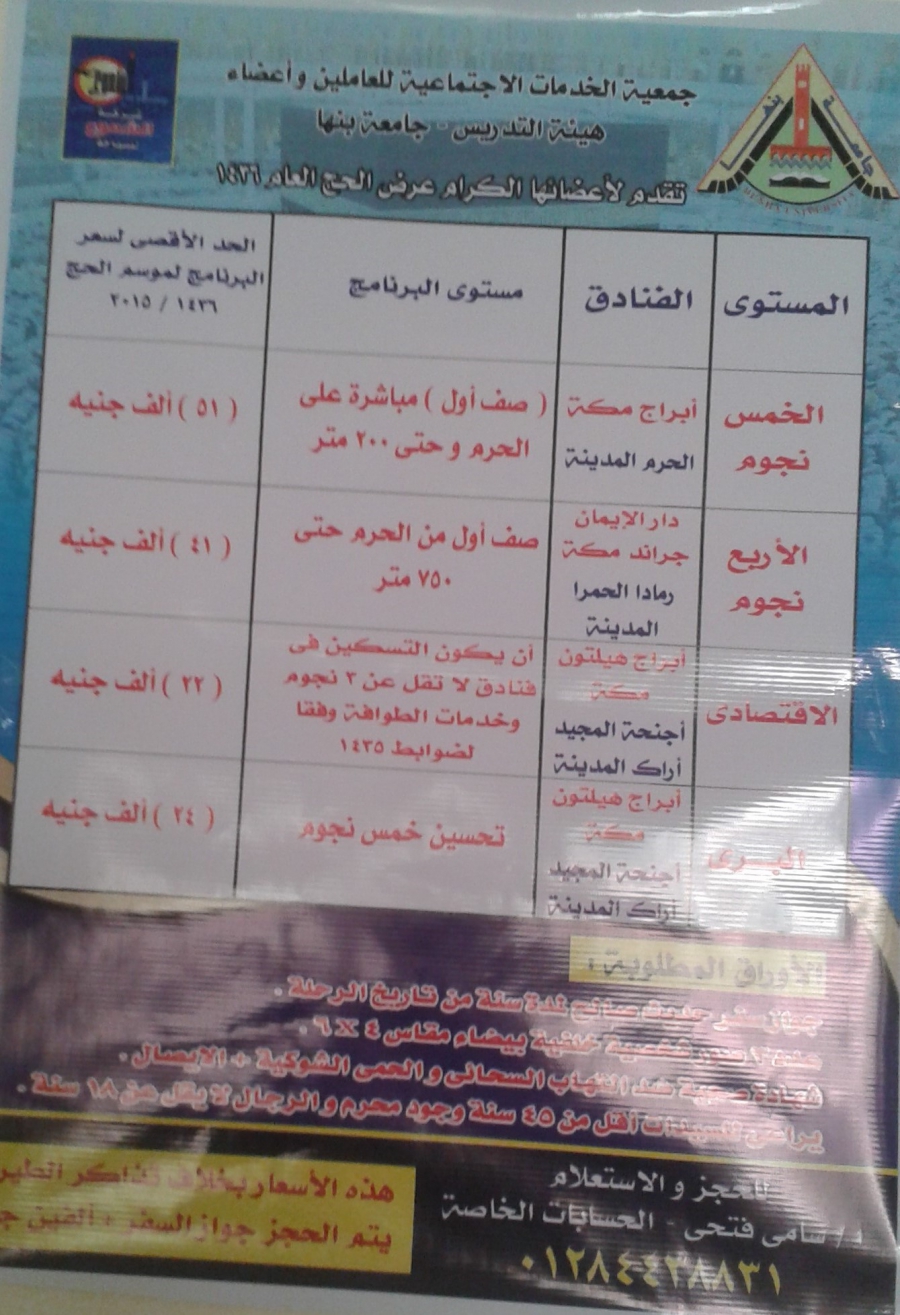 جمعية الخدمات الاجتماعية للعاملين وأعضاء
هيئة التدريس - جامعة بنها
تقدم لأعضائها الكرام عرض الحج العام ١٤٣٦
جامعة بنها
BENHA UNIVERSITY
المستوى
الفنادق
مستوى البرنامج
الحد الأقصى لسعر
البرنامج لموسم الحج
١٤٣٦ / ٢٠١٥
الخمس
نجوم
أبراج مكة
الحرم المدينة
( صف أول ) مباشرة على
الحرم و حتى ٢٠٠ متر
( ٥١ ) ألف جنيه
الأربع
نجوم
دار الإيمان
جراند مكة
رمادا الحمرا
المدينة
صف أول من الحرم حتى
٧٥٠ متر
( ٤١ ) ألف جنيه
الاقتصادى
أبراج هيلتون
مكة
أجنحة المجيد
أراك المدينة
أن يكون التسكين فى
فنادق لا تقل عن ٣ نجوم
وخدمات الطوافة وفقا
لضوابط ١٤٣٥
( ٢٢ ) ألف جنيه
البرى
أبراج هيلتون
مكة
أجنحة المجيد
أراك المدينة
تحسين خمس نجوم
( ٢٤ ) ألف جنيه
الأوراق المطلوبة :
جواز سفر حديث صالح لمدة سنة من تاريخ الرحلة .
صور شخصية خلفية بيضاء مقاس ٤ × ٦ .
شهادة صحية ضد التهاب السحائى و الحمى الشوكية + الايصال .
يراعى للسيدات أقل من ٤٥ سنة وجود محرم و الرجال لا يقل عن ١٨ سنة .
للحجز و الاستعلام
أ / سامى فتحى - الحسابات الخاصة
هذه الأسعار بخلاف تذاكر الطير
يتم الحجز جواز السفر + ألفين ج